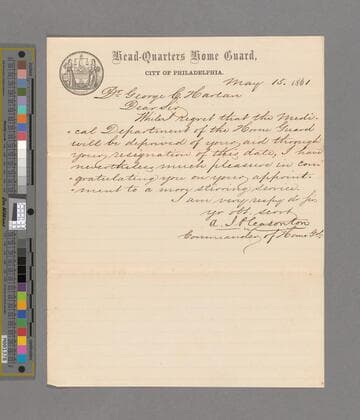 Head-Quarters Home Guard,
CITY OF PHILADELPHIA.
May 15. 1861
Dr George C. Harlan
Dear Sir
While I regret that the Medi-
-cal Department of the Home Guard
will be deprived of your aid through
your resignation of this date, I have
nevertheless, much pleasure in con-
gratulating you on your appoint-
-ment to a more stirring service.
I am very respy dr sir
yr obt servt
A. J. Pleasonton
Commander of Home Gd.